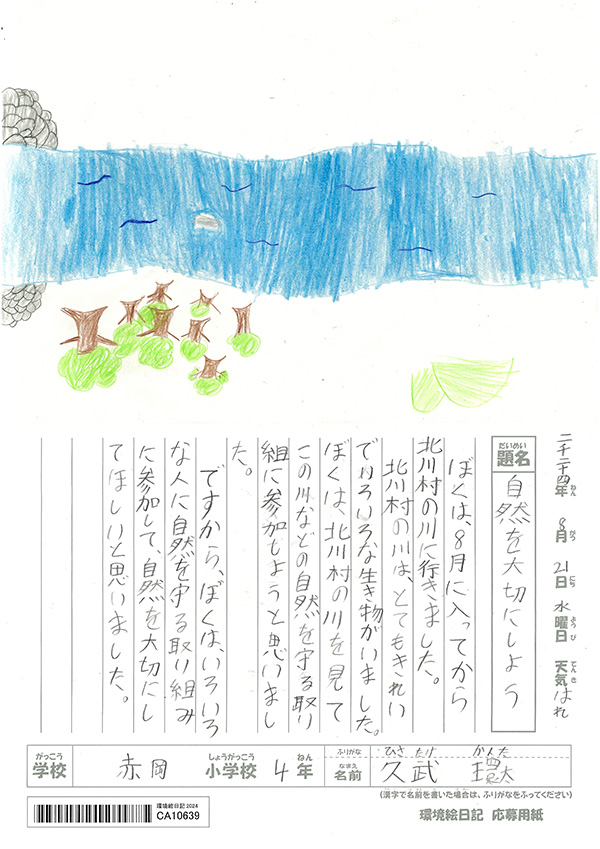 二千二十四年 8月 21日 水曜日 天気 はれ
だいめい
題名 自然を大切にしよう
ぼくは、8月に入ってから
北川村の川に行きました。
北川村の川は、とてもきれい
でいろいろな生き物がいました。
ぼくは、北川村の川を見て
この川などの自然を守る取り
組に参加しようと思いまし
た。
ですから、ぼくはいろいろ
な人に自然を守る取り組み
に参加して、自然を大切にし
てほしいと思いました。
がっこう しょうがっこう ねん ふりがな ひさ たけ かんた
学校 赤岡 小学校 4年 なまえ 名前 久武
(漢字で名前を書いた場合は、ふりがなをふってください)
環境絵日記 2024
CA10639
環境絵日記 応募用紙